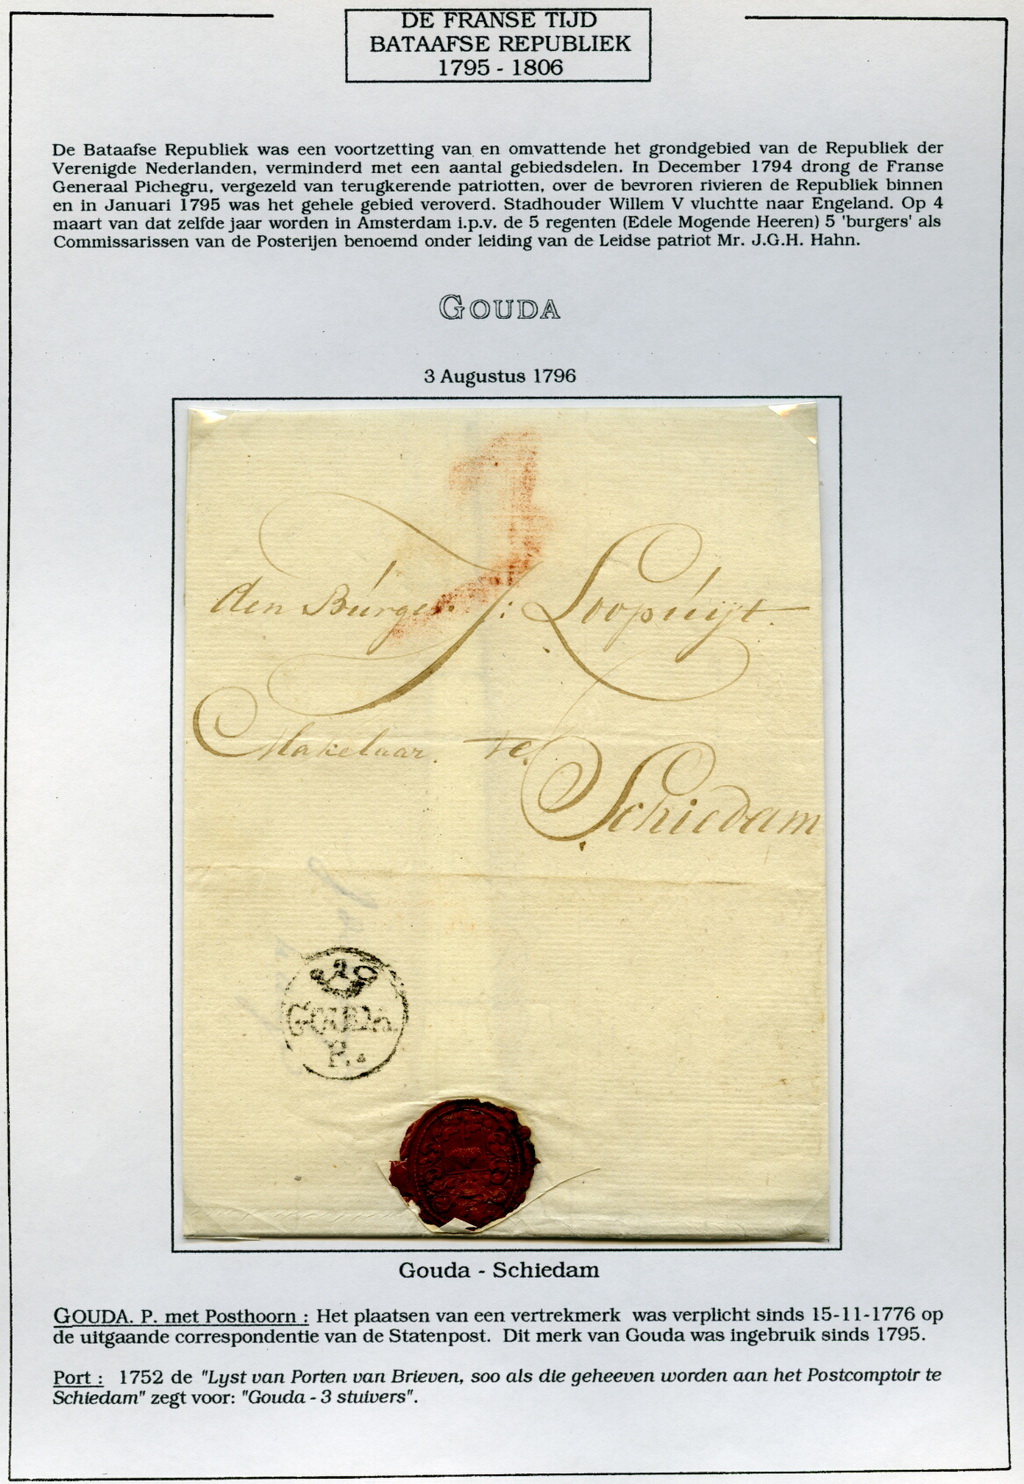 DE FRANSE TIJD
BATAAFSE REPUBLIEK
1795 - 1806
De Bataafse Republiek was een voortzetting van en omvattende het grondgebied van de Republiek der
Verenigde Nederlanden, verminderd met een aantal gebiedsdelen. In December 1794 drong de Franse
Generaal Pichegru, vergezeld van terugkerende patriotten, over de bevroren rivieren de Republiek binnen
en in Januari 1795 was het gehele gebied veroverd. Stadhouder Willem V vluchtte naar Engeland. Op 4
maart van dat zelfde jaar worden in Amsterdam i.p.v. de 5 regenten (Edele Mogende Heeren) 5 'burgers' als
Commissarissen van de Posterijen benoemd onder leiding van de Leidse patriot Mr. J.G.H. Hahn.
GOUDA
3 Augustus 1796
den Burger J: Loopuijt.
Makelaar. te
Schiedam
GOUDA.
P.
Gouda - Schiedam
GOUDA. P. met Posthoorn : Het plaatsen van een vertrekmerk was verplicht sinds 15-11-1776 op
de uitgaande correspondentie van de Statenpost. Dit merk van Gouda was ingebruik sinds 1795.
Port : 1752 de "Lyst van Porten van Brieven, soo als die geheeven worden aan het Postcomptoir te
Schiedam" zegt voor: "Gouda - 3 stuivers".